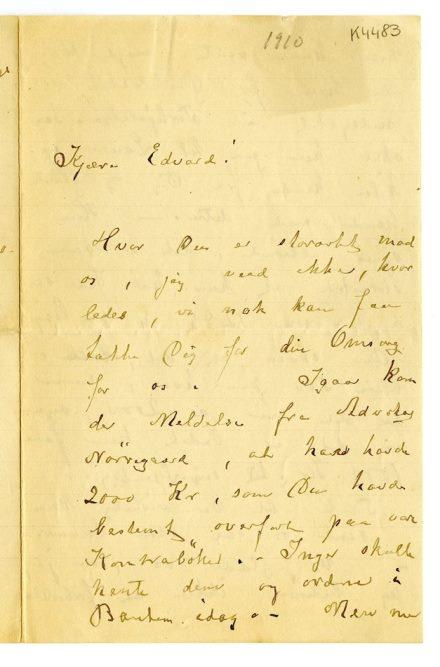 1910
K4483
Kjære Edvard!
Hvor Du er storartet mod
os, jeg veed ikke, hvor
ledes, vi nok kan faa
takke Dig for din Omsorg
for os. Igaar kom
der Meddelse fra Advokat
Nörregaard, at han havde
2000 Kr, som Du havde
bestemt overført paa vor
Kontrabök. - Inger skulle
hente dem og ordne i
Banken idag. - Men nu